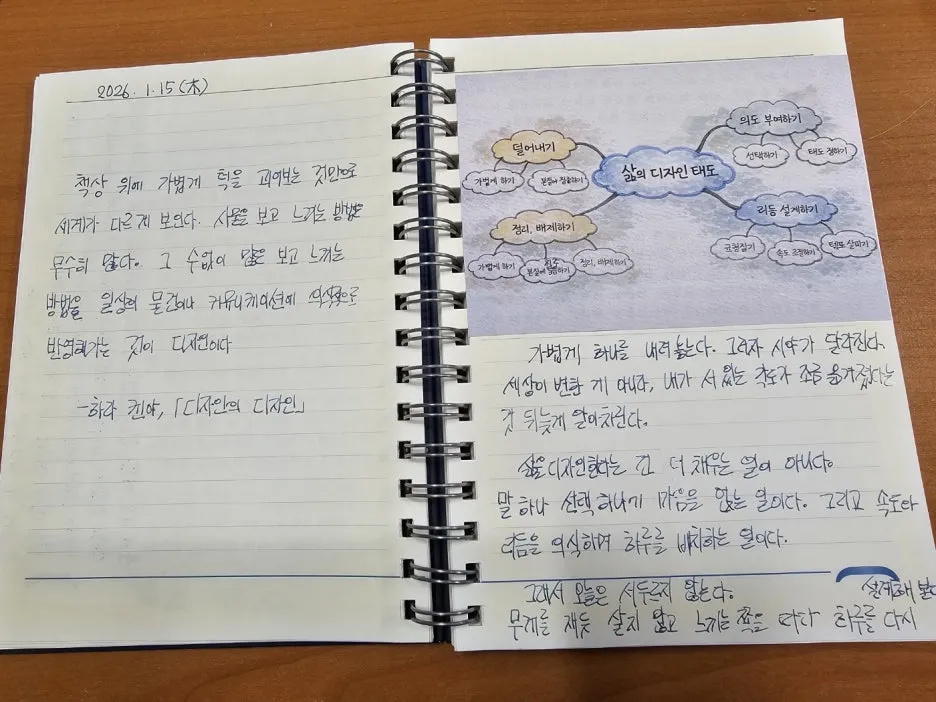 2026. 1. 15 (木)
책상 위에 가볍게 턱을 괴어보는 것만으로
세계가 다르게 보인다. 사물을 보고 느끼는 방법은
무수히 많다. 그 수없이 많은 보고 느끼는
방법을 일상의 물건이나 커뮤니케이션에 의식적으로
반영해가는 것이 디자인이다
-하라 켄야, 「디자인의 디자인」
삶의 디자인 태도
덜어내기
가볍게 하기
본질에 집중하기
정리, 배제하기
가볍게 하기
본질에 집중하기
정리, 배제하기
의도 부여하기
선택하기
태도 정하기
리듬 설계하기
균형잡기
속도 조절하기
템포 살피기
가볍게 하나를 내려놓는다. 그러자 시야가 달라진다.
세상이 변한 게 아니라, 내가 서 있는 각도가 조금 옮겨졌다는
것 뒤늦게 알아차린다.
삶을 디자인한다는 건 더 채우는 일이 아니다.
말 하나 선택 하나에 마음을 얹는 일이다. 그리고 속도와
리듬을 의식하며 하루를 배치하는 일이다.
그래서 오늘은 서두르지 않는다.
무게를 재듯 살지 않고 느끼는 쪽을 따라 하루를 다시
설계해 본다